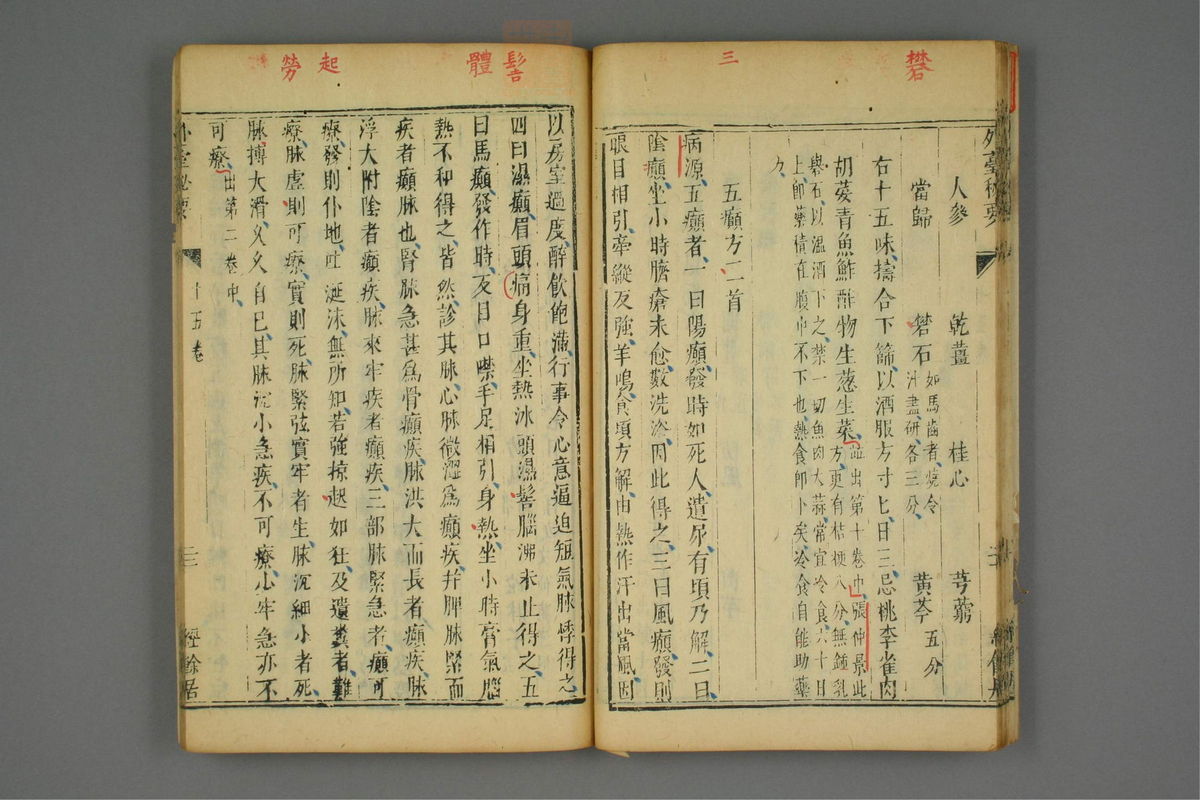 礬
三
外臺秘要
人參　乾薑　桂心　芎藭
當歸　礬石如馬齒者燒令汁盡研各三分　黃芩五分
右十五味擣合下篩以酒服方寸匕日三忌桃李雀肉
胡荽青魚鮓酢物生葱生菜並出第十卷中張仲景此方更有桔梗八分無鍾乳
礬石以溫酒下之禁一切魚肉大蒜常宜冷食六十日上即藥積在腹中不下也熱食即下矣冷食自能助藥
力
五癲方二首
病源五癲者一曰陽癲發時如死人遺尿有頃乃解二曰
陰癲坐小時臍瘡未愈數洗浴因此得之三曰風癲發則
眼目相引牽縱反強羊鳴食頃方解由熱作汗出當風因
髻
體
起
勞
以房室過度醉飲飽滿行事令心意逼迫短氣脉悸得之
四曰濕癲眉頭痛身重坐熱沐頭濕髻腦沸未止得之五
曰馬癲發作時反目口噤手足相引身熱坐小時膏氣腦
熱不和得之皆然診其脉心脉微澀為癲疾并脾脉緊而
疾者癲脉也腎脉急甚為骨癲疾脉洪大而長者癲疾脉
浮大附陰者癲疾脉來牢疾者癲疾三部脉緊急者癲可
療發則仆地吐涎沫無所知若強掠起如狂及遺糞者難
療脉虛則可療實則死脉緊弦實牢者生脉沉細小者死
脉搏大滑久久自已其脉沉小急疾不可療小牢急亦不
可療出第二卷中
外臺秘要
十五卷
三
經餘居